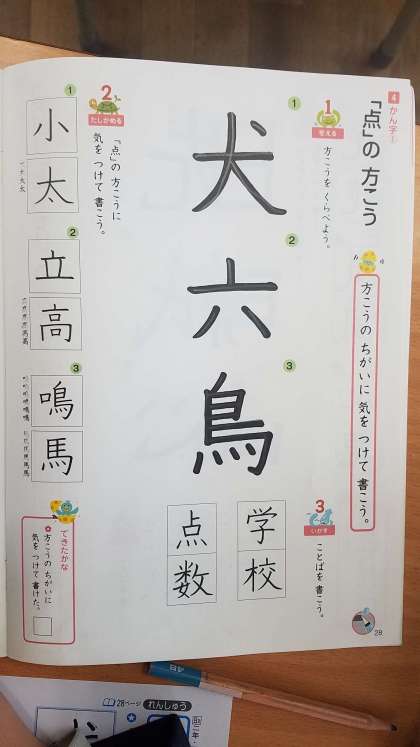 4 かん字①
「点」の 方こう
方こうの ちがいに 気を つけて 書こう。
1 考える
方こうを くらべよう。
1
犬
2
六
3
鳥
3 いかす
ことばを 書こう。
学校
点数
2 たしかめる
「点」の 方こうに
気を つけて 書こう。
1
小
太
2
立
高
3
鳴
馬
できたかな
方こうの ちがいに
気を つけて 書けた。
28
28ページ れんしゅう